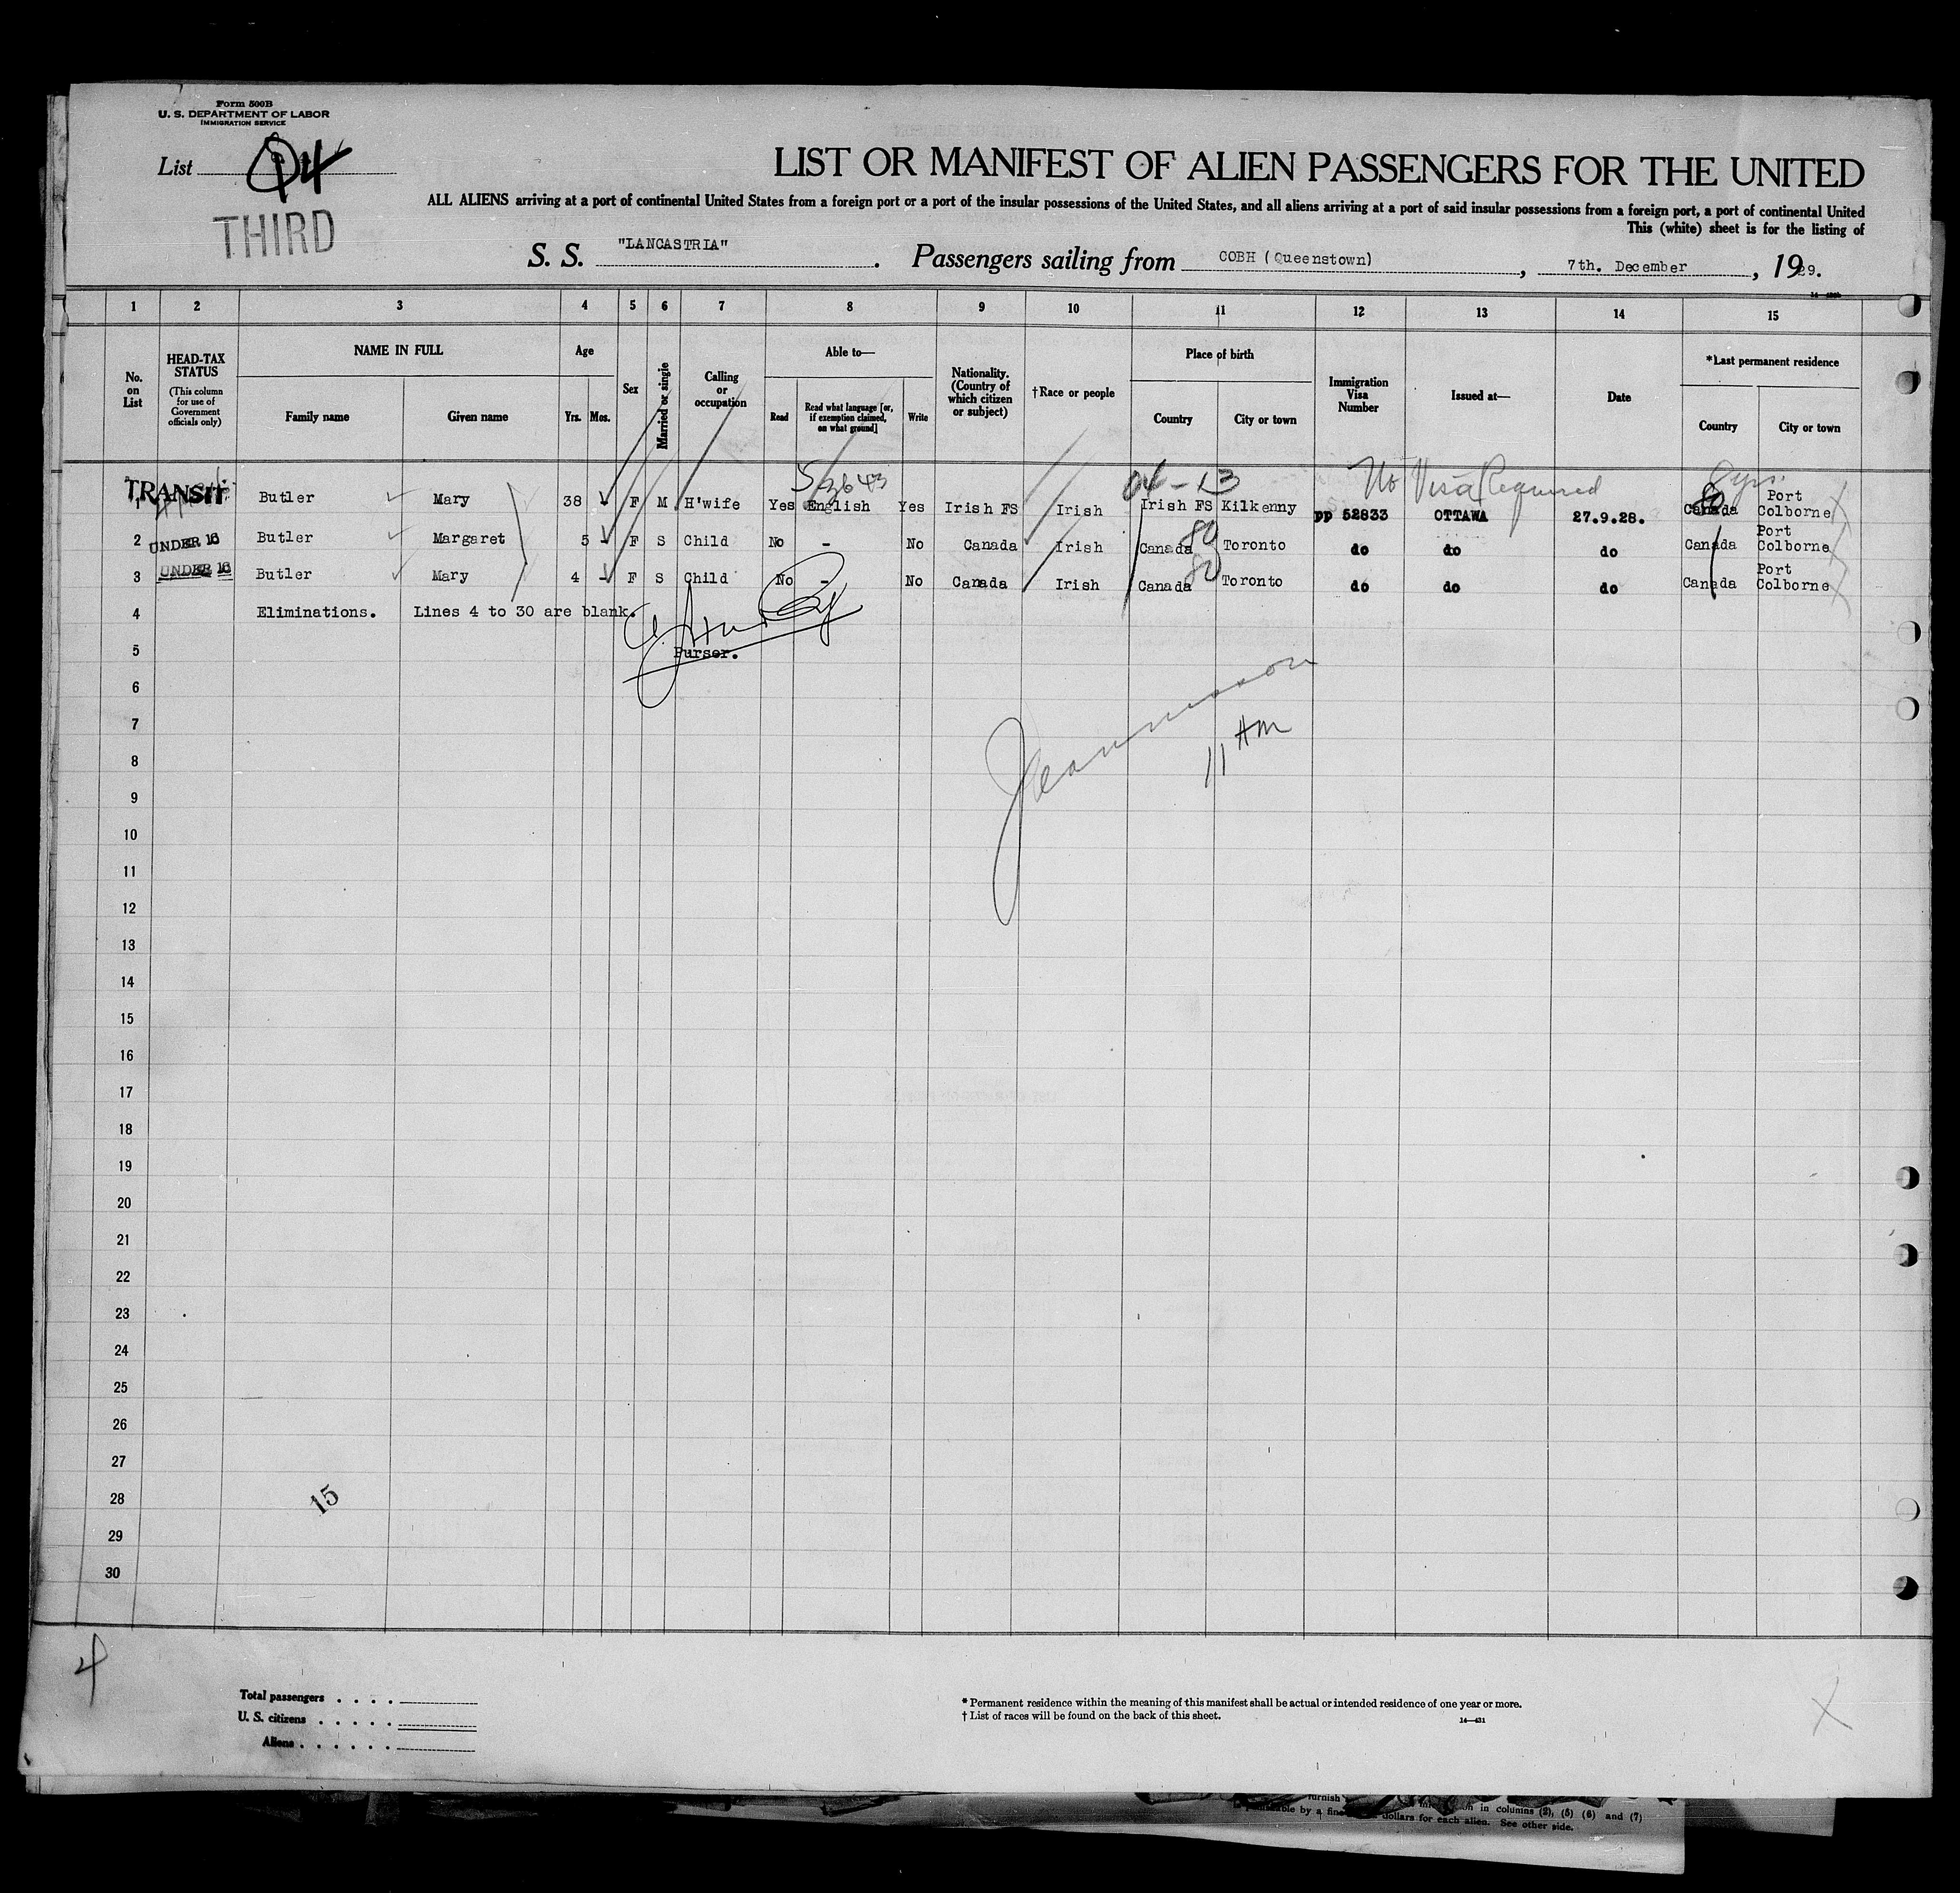 Form 500B
U. S. DEPARTMENT OF LABOR
IMMIGRATION SERVICE
List 4
THIRD
LIST OR MANIFEST OF ALIEN PASSENGERS FOR THE UNITED
ALL ALIENS arriving at a port of continental United States from a foreign port or a port of the insular possessions of the United States, and all aliens arriving at a port of said insular possessions from a foreign port, a port of continental United
This (white) sheet is for the listing of
S. S. "LANCASTRIA". Passengers sailing from COBH (Queenstown), 7th. December, 1929.
1 2 3 4 5 6 7 8 9 10 11 12 13 14 15
No. on List
HEAD-TAX STATUS
(This column for use of Government officials only)
NAME IN FULL
Family name Given name
Age
Yrs. Mos.
Sex
Married or single
Calling or occupation
Able to—
Read
Read what language [or, if exemption claimed, on what ground]
Write
Nationality. (Country of which citizen or subject)
†Race or people
Place of birth
Country City or town
Immigration Visa Number
Issued at—
Date
*Last permanent residence
Country City or town
53643 04-13 No Visa Required 8 yrs.
1 TRANSIT Butler Mary 38 - F M H'wife Yes English Yes Irish FS Irish Irish FS Kilkenny pp 52833 OTTAWA 27.9.28. Canada Port Colborne
2 UNDER 16 Butler Margaret 5 - F S Child No - No Canada Irish Canada 80 Toronto do do do Canada Port Colborne
3 UNDER 16 Butler Mary 4 - F S Child No - No Canada Irish Canada 80 Toronto do do do Canada Port Colborne
4 Eliminations. Lines 4 to 30 are blank.
5 Purser.
6
7
11 AM
8
9
10
11
12
13
14
15
16
17
18
19
20
21
22
23
24
25
26
27
28 15
29
30
4
Total passengers . . . .
U. S. citizens . . . . .
Aliens . . . . . .
* Permanent residence within the meaning of this manifest shall be actual or intended residence of one year or more.
† List of races will be found on the back of this sheet.
14—431
X
furnish in columns (2), (5) (6) and (7)
by a fine dollars for each alien. See other side.